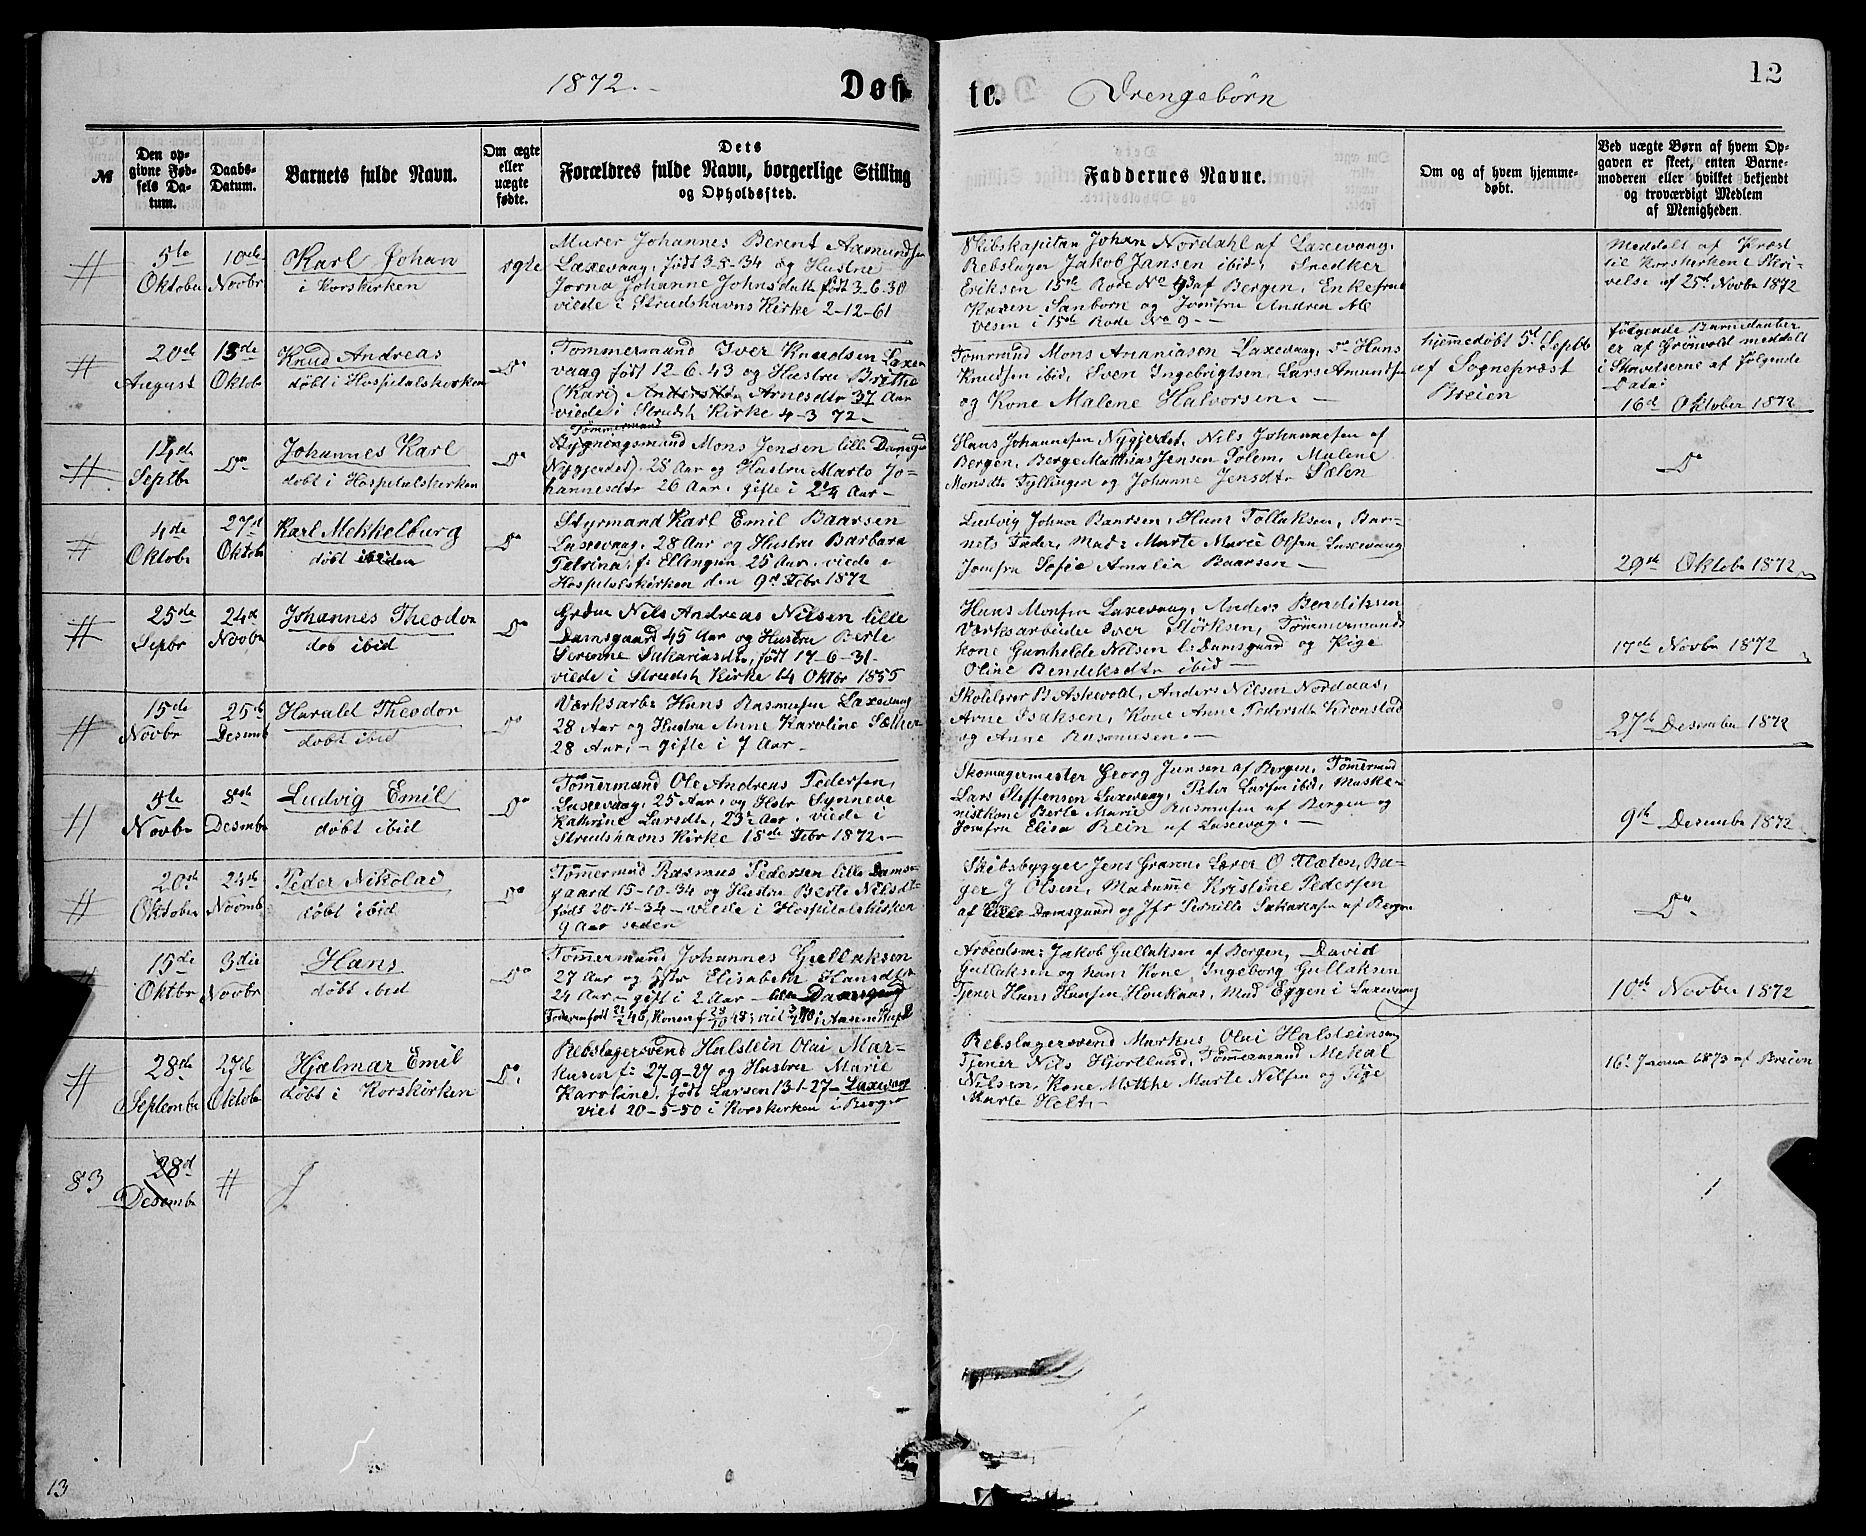 1872.
Døb-
te.
Drengebørn
12
№
Den op-
givne Fød-
sels Da-
tum.
Daabs-
Datum.
Barnets fulde Navn.
Om ægte
eller
uægte
fødte.
Dets
Forældres fulde Navn, borgerlige Stilling
og Opholdssted.
Faddernes Navne.
Om og af hvem hjemme-
døbt.
Ved uægte Børn af hvem Op-
gaven er skeet, enten Barne-
moderen eller hvilket bekjendt
og troværdigt Medlem
af Menigheden.
#
5te
Oktober
10de
Novbr
Karl Johan
i Korskirken
Murer Johannes Berent Aamundsen
Laxevaag, født 3-8-34 og Hustru
Jorna Johanne Johnsdatt født 3-6-30
viede i Strudshavns Kirke 2-12-61
Skibskapitan Johan Nordahl af Laxevaag,
Rebslager Jakob Jansen ibid, Snedker
Eriksen 15de Rode No af Bergen, Enkefrue
Karen Sanborn og Jomfru Andrea
i 15de Rode No 9 -
Meddelt af Præst
til Korskirken i Skri-
velse af 25de Novbr 1872
#
20de
August
13de
Oktob
Knud Andreas
døbt i Hospitalskirken
Do
Tømmermand Iver Knudsen Laxe-
vaag født 12-6-43 og Hustru Brithe
(Kari) Arnesdtr 37 Aar
viede i Strudsh Kirke 4-3 72 -
Tømrmnd Mons Ananiasen Laxevaag, Do Hans
Knudsen ibid, Sven Ingebrigtsen, Lars Amundsen
og Kone Malene Halvorsen. -
hjemmedøbt 5te Septbr
af Sogneprest
Breien
følgende Barnedaaber
er af Grönvold meddelt
i Skrivelserne af følgende
Data:
16de Oktober 1872
#
14de
Septbr
Do
Johannes Karl
døbt i Hospitalskirken
Do
Tømmermand
Bygningsmand Mons Jensen lille Damsgrd
Nygjerdet, 28 Aar og Hustru Marte Jo-
hannesdtr 26 Aar, gifte i 2¼ Aar -
Hans Johannesen Nygjerdet, Nils Johannesen af
Bergen, Berge Mathias Jensen Solem, Malene
Monsdtr Fyllingen og Johanne Jensdtr Sælen
Do
#
4de
Oktobr
27de
Oktobr
Karl Mekkelburg
døbt ibiden
Do
Styrmand Karl Emil Baarsen
Laxevaag, 28 Aar og Hustru Barbara
Petrina f: Ellingsen 25 Aar, viede i
Hospitalskirken den 9de Febr 1872
Ludvig Johan Baarsen, Hans Tollaksen, Bar-
nets Fader, Mad: Marte Marie Olsen Laxevaag
Jomfru Sofie Amalia Baarsen -
29de Oktobr 1872
#
25de
Sepbr
24de
Novbr
Johannes Theodor
døb ibid
Do
Nils Andreas Nilsen lille
Damsgaard 45 Aar og Hustru Berte
Serevine Sakariasdtr, født 17-6-31-
viede i Strudsh Kirke 14 Oktbr 1855
Hans Monsen Laxevaag, Anders Bendiksen
Værksarbeider Iver Störksen, Tømmermands
kone Gunhilde Nilsen l: Damsgaard og Pige
Oline Bendiksdtr ibid -
17de Novbr 1872
#
15de
Novbr
25de
Desemb
Harald Theodor
døbt ibid
Do
Værksarb Hans Rasmusen Laxevaag
28 Aar og Hustru Anne Karoline Sætter
28 Aar, - gifte i 7 Aar -
Skolelærer B Askevold, Anders Nilsen Nordaas,
Arne Isaksen, Kone Anne Pedersdtr Kronstad
og Anne Rasmusen. -
27de Desembr 1872
#
5te
Novbr
8de
Desembr
Ludvig Emil
døbt ibid
Do
Tømmermand Ole Andreas Pedersen,
Laxevaag, 25 Aar, og Hstr Synneve
Kathrine Larsdtr, 23 Aar, viede i
Strudshavns Kirke 18de Febr 1872. -
Skomagermester Georg Junsen af Bergen, Tömmermand
Lars Steffensen Laxevaag, Peter Larsen ibid, Maske-
nistkone Berte Marie Rasmusen af Bergen og
Jomfru Elisa Rein af Laxevaag. -
9de Desembr 1872
#
20de
Oktober
24de
Novmb
Peder Nikolai
døbt ibid
Do
Tømmermand Rasmus Pedersen lille Dams-
gaard 15-10-34 og Hustru Berte Nilsdtr
født 20-11-34 - viede i Hospitalskirken
9 Aar siden
Skibsbygger Jens Gravne, Lærer O Fleten, Ba-
ger J Olsen, Madamme Kristine Pedersen
af Lille Damsgaard og Jfr Pernille Sakariasen af Bergen
Do
#
15de
Oktbr
3die
Novbr
Hans
døbt ibid
Do
Tömmermand Johannes Gullaksen
27 Aar og Hstr Elisabeth Hansdtr
24 Aar - gift i 2 Aar - lille Damsgaard
Arbeidsm: Jakob Gullaksen af Bergen, David
Gullaksen og hans Kone, Ingeborg Gullaksen
Tjener Hans Hansen Haukaas, Mad Eggen i Laxevaag
10de Novbr 1872
#
28de
Septembr
27de
Oktobr
Hjalmar Emil
døbt i Korskirken
Do
Rebslagersvend Halstein Olai Mar-
kusen f: 27-9-27 og Hustru Marie
Karoline, født Larsen 13-1-27 - Laxevaag
viet 20-5-50 i Korskirken i Bergen
Rebslagersvend Markus Olai Halsteinsen
Tjener Nils Hjortlund, Tømmermand Mekal
Nilsen, Kone Mætthe Marte Nilsen og Pige
Marte Holt. -
16de Januar 1873 af Breien
83
28d
Desembr
#
13